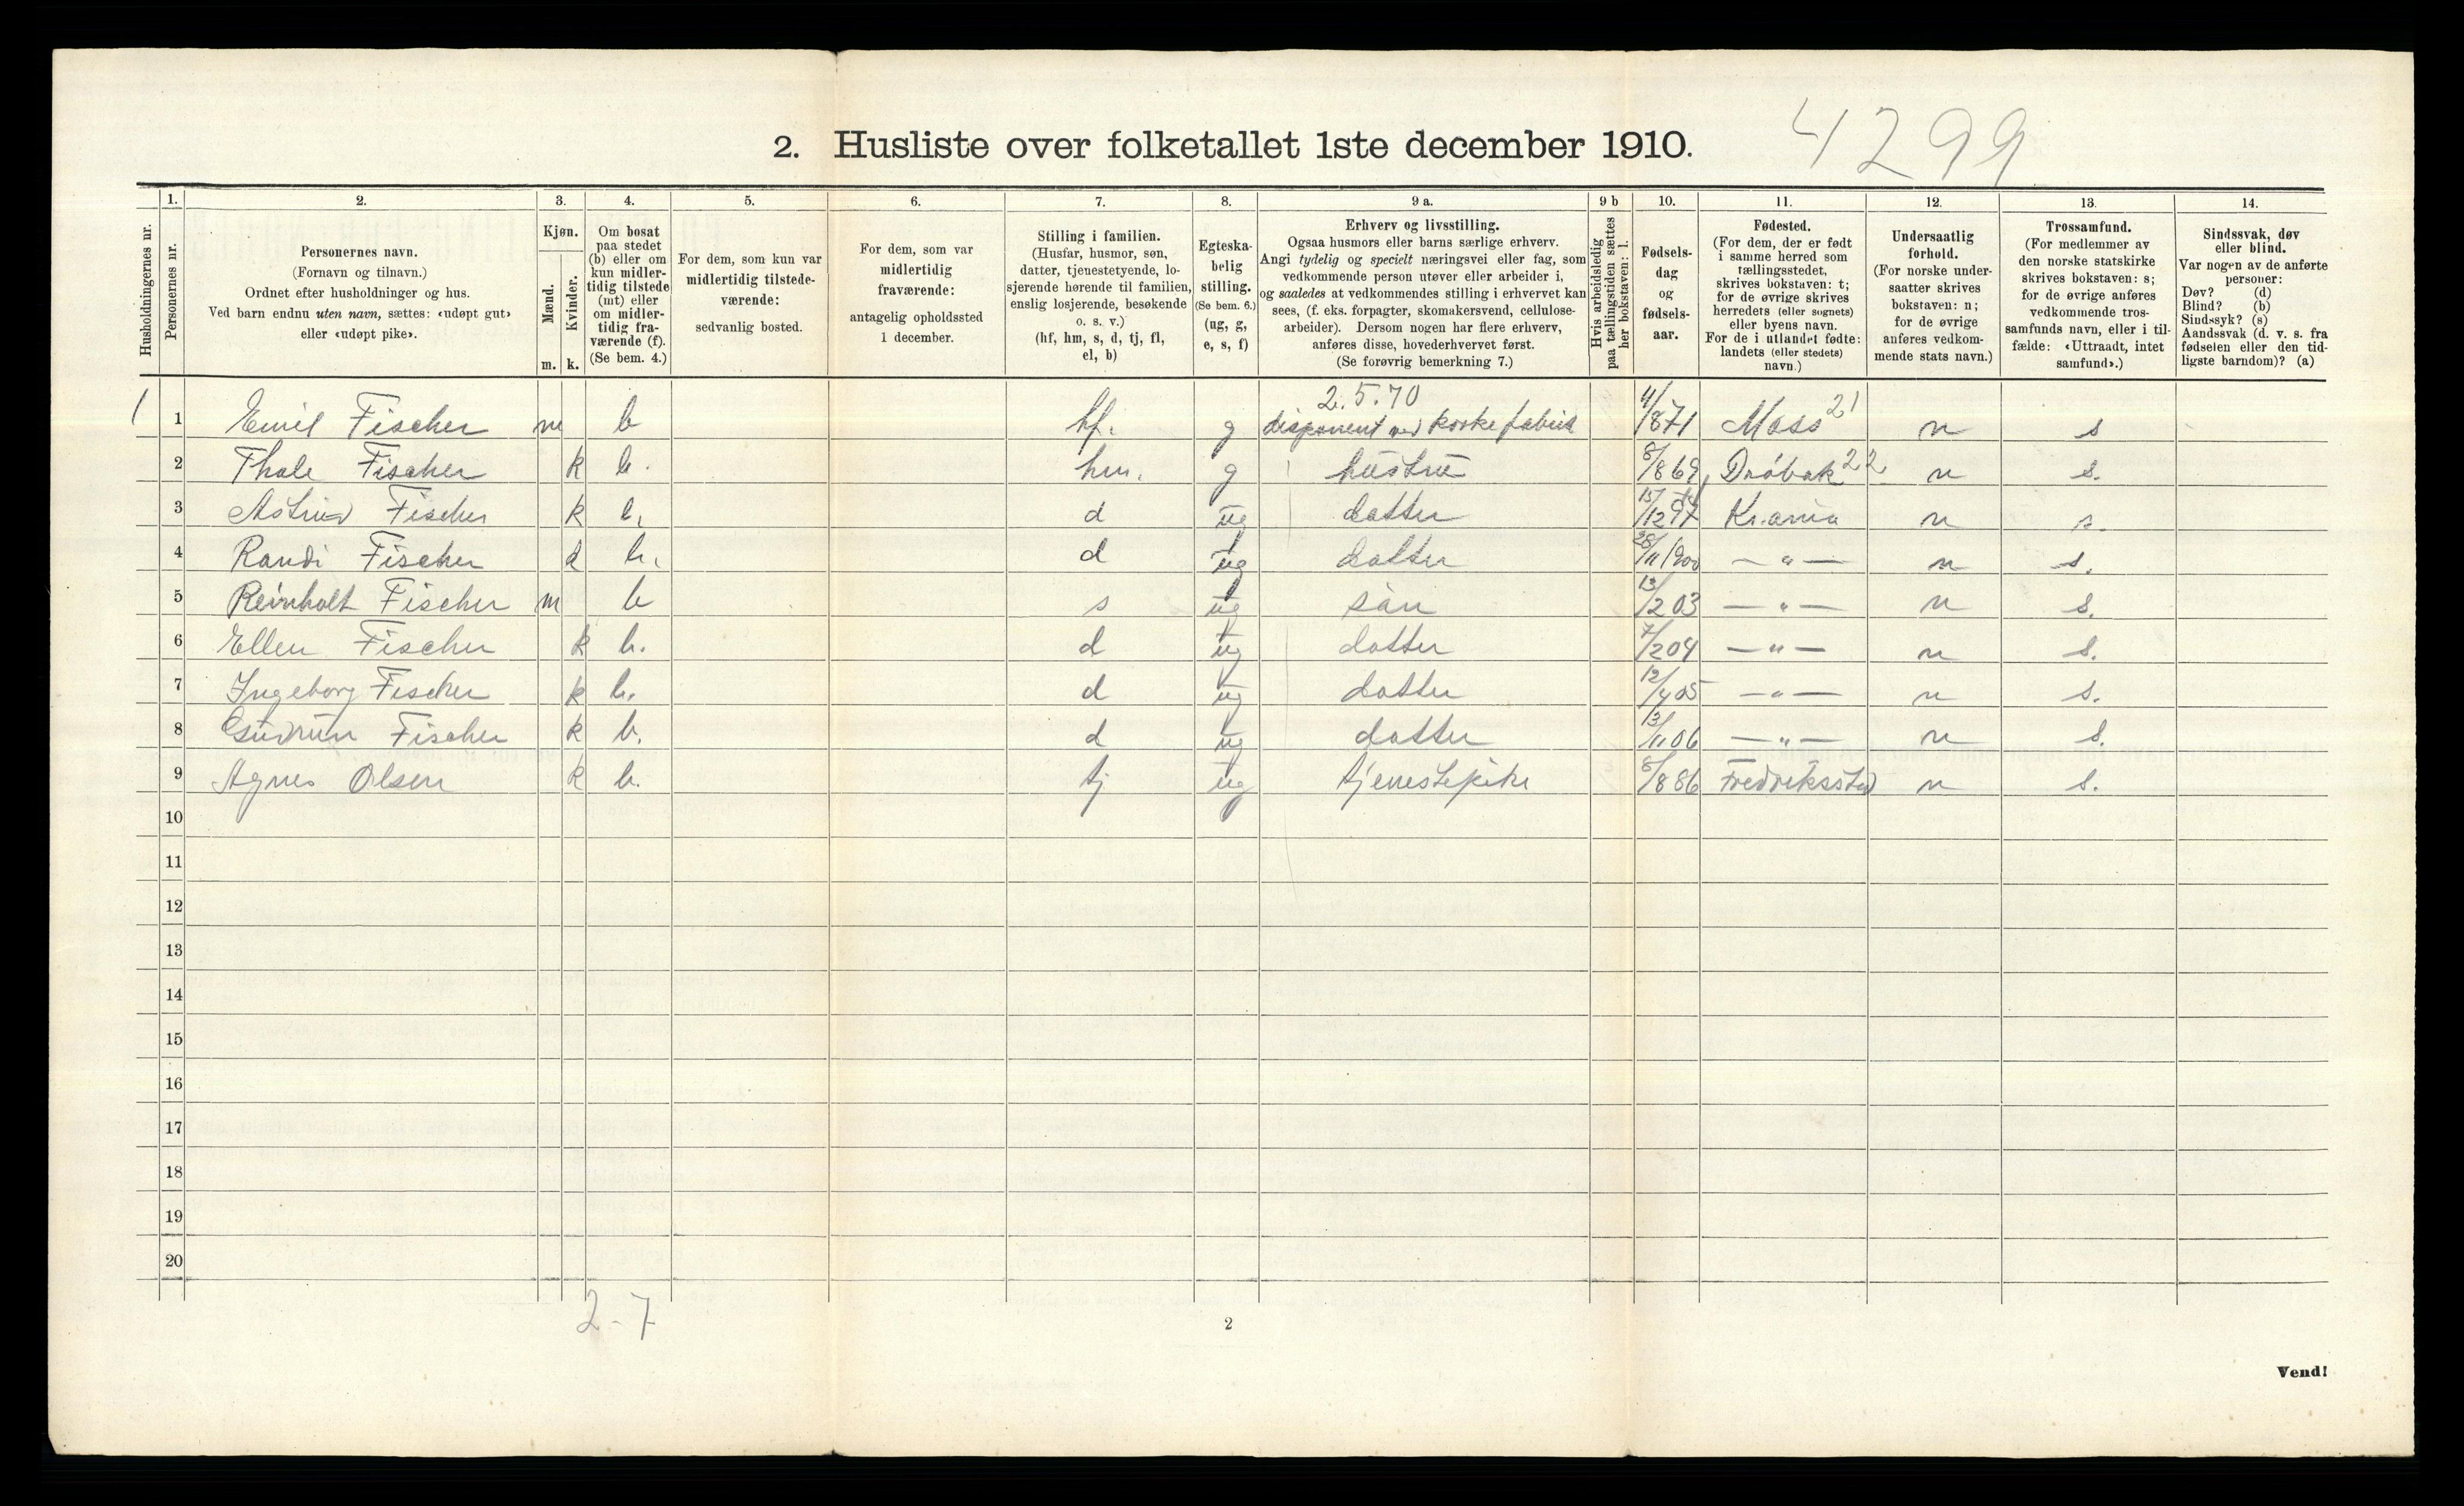 4299
2. Husliste over folketallet 1ste december 1910.
Husholdningernes nr.
1.
Personernes nr.
2.
Personernes navn.
(Fornavn og tilnavn.)
Ordnet efter husholdninger og hus.
Ved barn endnu uten navn, sættes: «udøpt gut»
eller «udøpt pike».
3.
Kjøn.
Mænd.
m.
Kvinder.
k.
4.
Om bosat
paa stedet
(b) eller om
kun midler-
tidig tilstede
(mt) eller
om midler-
tidig fra-
værende (f).
(Se bem. 4.)
5.
For dem, som kun var
midlertidig tilstede-
værende:
sedvanlig bosted.
6.
For dem, som var
midlertidig
fraværende:
antagelig opholdssted
1 december.
7.
Stilling i familien.
(Husfar, husmor, søn,
datter, tjenestetyende, lo-
sjerende hørende til familien,
enslig losjerende, besøkende
o. s. v.)
(hf, hm, s, d, tj, fl,
el, b)
8.
Egteska-
belig
stilling.
(Se bem. 6.)
(ug, g,
e, s, f)
9 a.
Erhverv og livsstilling.
Ogsaa husmors eller barns særlige erhverv.
Angi tydelig og specielt næringsvei eller fag, som
vedkommende person utøver eller arbeider i,
og saaledes at vedkommendes stilling i erhvervet kan
sees, (f. eks. forpagter, skomakersvend, cellulose-
arbeider). Dersom nogen har flere erhverv,
anføres disse, hovederhvervet først.
(Se forøvrig bemerkning 7.)
9 b
Hvis arbeidsledig
paa tællingstiden sættes
her bokstaven: l.
10.
Fødsels-
dag
og
fødsels-
aar.
11.
Fødested.
(For dem, der er født
i samme herred som
tællingsstedet,
skrives bokstaven: t;
for de øvrige skrives
herredets (eller sognets)
eller byens navn.
For de i utlandet fødte:
landets (eller stedets)
navn.)
12.
Undersaatlig
forhold.
(For norske under-
saatter skrives
bokstaven: n;
for de øvrige
anføres vedkom-
mende stats navn.)
13.
Trossamfund.
(For medlemmer av
den norske statskirke
skrives bokstaven: s;
for de øvrige anføres
vedkommende tros-
samfunds navn, eller i til-
fælde: «Uttraadt, intet
samfund».)
14.
Sindssvak, døv
eller blind.
Var nogen av de anførte
personer:
Døv? (d)
Blind? (b)
Sindssyk? (s)
Aandssvak (d. v. s. fra
fødselen eller den tid-
ligste barndom)? (a)
2.5.70
1 1 Emil Fischer m b hf. g disponent ved korkefabrik 4/1871 Moss 21 n s
2 Thale Fischer k b. hm. g hustru 8/869 Drøbak 22 n s.
3 Astrid Fischer k b, d ug datter 15/12 97 Kr.ania n s.
4 Randi Fischer k b. d ug datter 28/11 1900 — " — n s.
5 Reinholt Fischer m b s ug søn 13/2 03 — " — n s.
6 Ellen Fischer k b. d ug datter 7/2 04 — " — n s.
7 Ingeborg Fischer k b. d ug datter 12/4 05 — " — n s.
8 Gudrun Fischer k b. d ug datter 13/11 06 — " — n s.
9 Agnes Olsen k b. tj ug tjenestepike 8/8 86 Fredriksstad n s.
10
11
12
13
14
15
16
17
18
19
20
2-7
2
Vend!